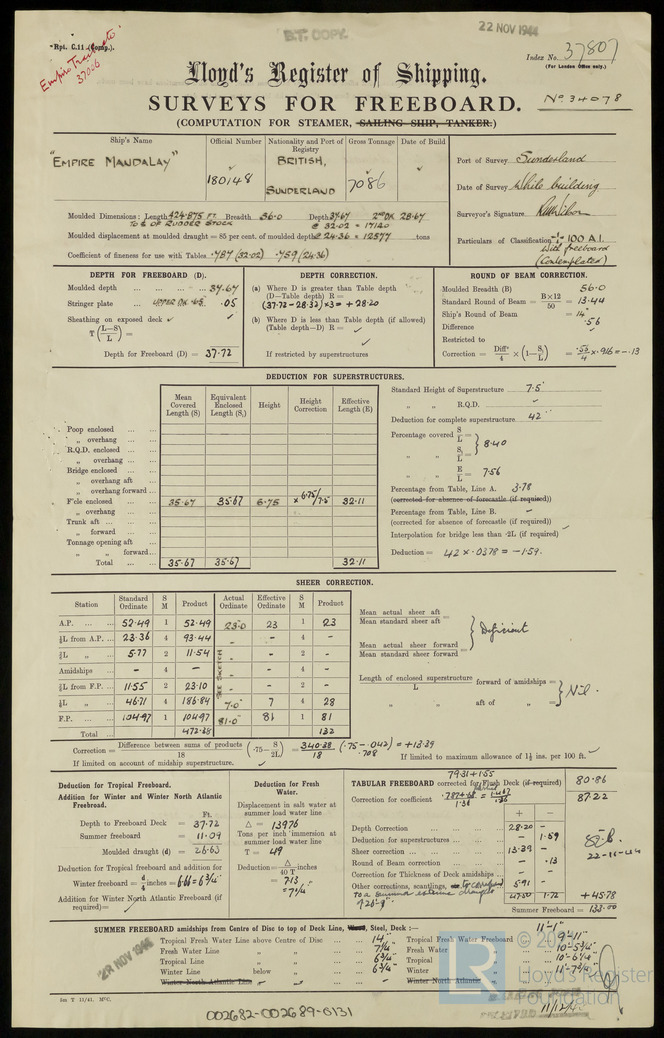 B.T. COPY.
22 NOV 1944
Rpt. C.11 (Comp.).
Index No. 37807
(For London Office only.)
37006
Lloyd's Register of Shipping.
SURVEYS FOR FREEBOARD.
No 34078
(COMPUTATION FOR STEAMER, SAILING SHIP, TANKER.)
Ship's Name
Official Number
Nationality and Port of Registry
Gross Tonnage
Date of Build
"EMPIRE MANDALAY"
180148
BRITISH,
SUNDERLAND
7086
Port of Survey Sunderland
Date of Survey While building
Surveyor's Signature
Particulars of Classification 100 A1.
With freeboard
(Contemplated)
Moulded Dimensions: Length 424.875 FT. Breadth 56.0 Depth 37.67 2nd DK 28.67
TO ¢ OF RUDDER STOCK
@ 32.02 = 17120
Moulded displacement at moulded draught = 85 per cent. of moulded depth @ 24.36 = 12577 tons
Coefficient of fineness for use with Tables .787 (32.02) .759 (24.36)
DEPTH FOR FREEBOARD (D).
Moulded depth 37.67
Stringer plate UPPER DK .05
Sheathing on exposed deck
T (L-S/L) =
Depth for Freeboard (D) = 37.72
DEPTH CORRECTION.
(a) Where D is greater than Table depth
(D-Table depth) R =
(37.72-28.32) x 3 = + 28.20
(b) Where D is less than Table depth (if allowed)
(Table depth-D) R =
If restricted by superstructures
ROUND OF BEAM CORRECTION.
Moulded Breadth (B) 56.0
Standard Round of Beam = B×12/50 = 13.44
Ship's Round of Beam = 14"
Difference .56
Restricted to
Correction = Diffce/4 × (1-S1/L) = .55/4 x .916 = -.13
DEDUCTION FOR SUPERSTRUCTURES.
Mean Covered Length (S)
Equivalent Enclosed Length (S1)
Height
Height Correction
Effective Length (E)
Poop enclosed
" overhang
R.Q.D. enclosed
" overhang
Bridge enclosed
" overhang aft
" overhang forward
F'cle enclosed 35.67 35.67 6.75 x 6.75/7.5 32.11
" overhang
Trunk aft
" forward
Tonnage opening aft
" " forward
Total 35.67 35.67 32.11
Standard Height of Superstructure 7.5
" " R.Q.D.
Deduction for complete superstructure 42"
Percentage covered S/L =
" " S1/L = 8.40
" " E/L = 7.56
Percentage from Table, Line A. 3.78
(corrected for absence of forecastle (if required))
Percentage from Table, Line B. -
(corrected for absence of forecastle (if required))
Interpolation for bridge less than .2L (if required)
Deduction = 42 x .0378 = -1.59.
SHEER CORRECTION.
Station
Standard Ordinate
S M
Product
Actual Ordinate
Effective Ordinate
S M
Product
A.P. 52.49 1 52.49 23.0 23 1 23
⅙L from A.P. 23.36 4 93.44 - - 4 -
⅓L " 5.77 2 11.54 - - 2 -
Amidships - 4 - - - 4 -
⅓L from F.P. 11.55 2 23.10 - - 2 -
⅙L " 46.71 4 186.84 7.0 7 4 28
F.P. 104.97 1 104.97 81.0 81 1 81
SEE SKETCH
Total 472.38 132
Mean actual sheer aft
Mean standard sheer aft =
Mean actual sheer forward
Mean standard sheer forward =
Deficient
Length of enclosed superstructure/L forward of amidships =
" " aft of " =
Nil.
Correction = Difference between sums of products/18 (.75 - S/2L) = 340.38/18 (.75-.042) = +13.39
.708
If limited on account of midship superstructure.
If limited to maximum allowance of 1½ ins. per 100 ft.
Deduction for Tropical Freeboard.
Addition for Winter and Winter North Atlantic Freeboard.
Ft.
Depth to Freeboard Deck = 37.72
Summer freeboard = 11.09
Moulded draught (d) = 26.63
Deduction for Tropical freeboard and addition for
Winter freeboard = d/4 inches = 6.66 = 6¾"
Addition for Winter North Atlantic Freeboard (if required) =
Deduction for Fresh Water.
Displacement in salt water at summer load water line
Δ = 13976
Tons per inch immersion at summer load water line
T = 49
Deduction = Δ/40 T inches
= 7.13
= 7¼"
79.31 + 1.55
TABULAR FREEBOARD corrected for Flush Deck (if required) 80.86
Correction for coefficient .787+.68/1.36 = 1.467/1.36 87.22
+ -
Depth Correction 28.20 -
Deduction for superstructures - 1.59
Sheer correction 13.39 -
Round of Beam correction - .13
Correction for Thickness of Deck amidships - -
Other corrections, scantlings, to correspond 5.91 -
to a summer extreme draught
26'-9"
47.50 1.72 +45.78
Summer Freeboard = 133.00
22-11-44
SUMMER FREEBOARD amidships from Centre of Disc to top of Deck Line, Wood, Steel, Deck:— 11'-1"
Tropical Fresh Water Line above Centre of Disc 14"
Fresh Water Line " " 7¼"
Tropical Line " " 6¾"
Winter Line below " 6¾"
Winter North Atlantic Line " "
Tropical Fresh Water Freeboard 9'-11"
Fresh Water " 10'-5¾"
Tropical " 10'-6¼"
Winter " 11'-7¾"
Winter North Atlantic "
Lloyd's Register
Foundation
11/12/4
002682-002689-0131